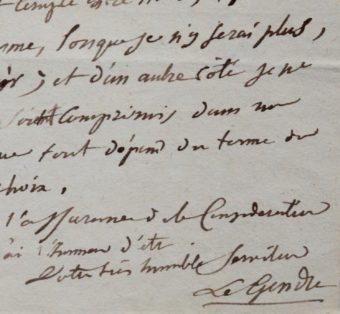 lorsque je n'y serai plus,
; et d'un autre côté je ne
soit compromis, dans un
que tout dépend du terme du
choix.
l'assurance d la Consideration
l'honneur d'etr
Votre très humble Serviteur
Le Gendre